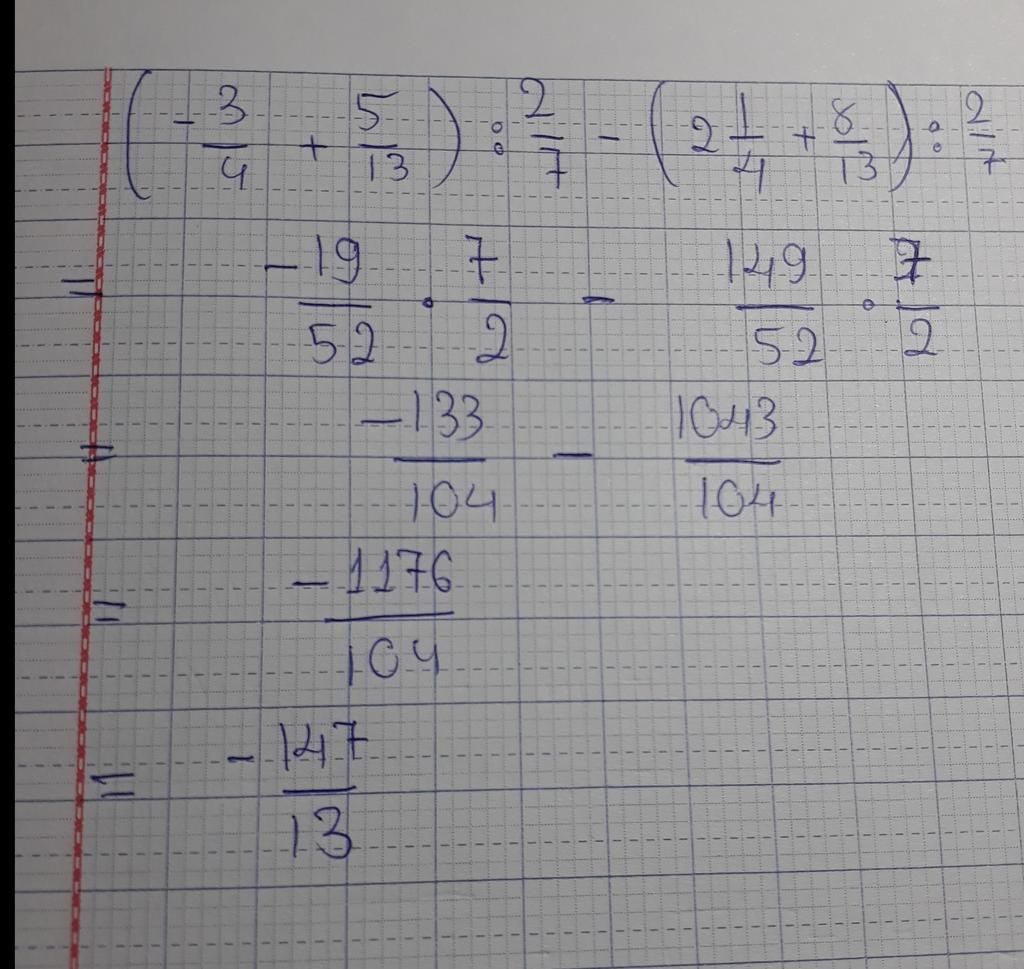 (-3/4 + 5/13) : 2/7 - (2 1/4 + 8/13) : 2/7
= -19/52 · 7/2 - 149/52 · 7/2
= -133/104 - 1043/104
= -1176/104
= -147/13